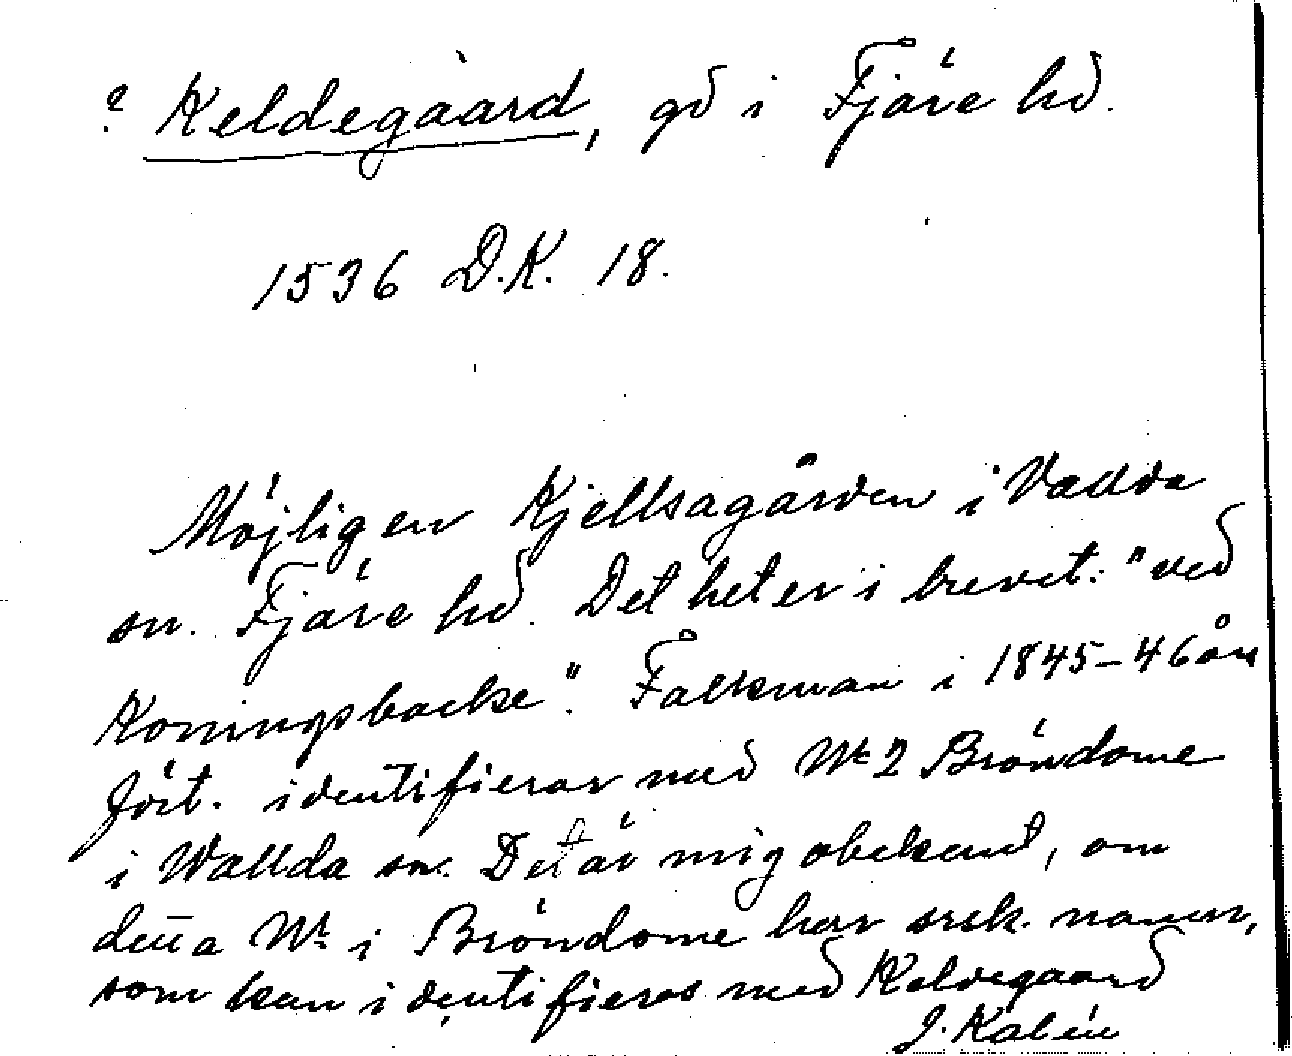 ? Keldegaard, gd i Fjäre hd.
1536 D.K. 18.
Möjligen Kjellsagården i Vallda
sn. Fjäre hd. Det heter i brevet: "ved
Koningsbacke". Falkman i 1845–46 års
fört. identifierar med Nr 2 Bröndome
i Wallda sn. Det är mig obekant, om
denna Nr i Bröndome har srsk. namn,
som kan identifieras med Keldegaard
J. Kalén